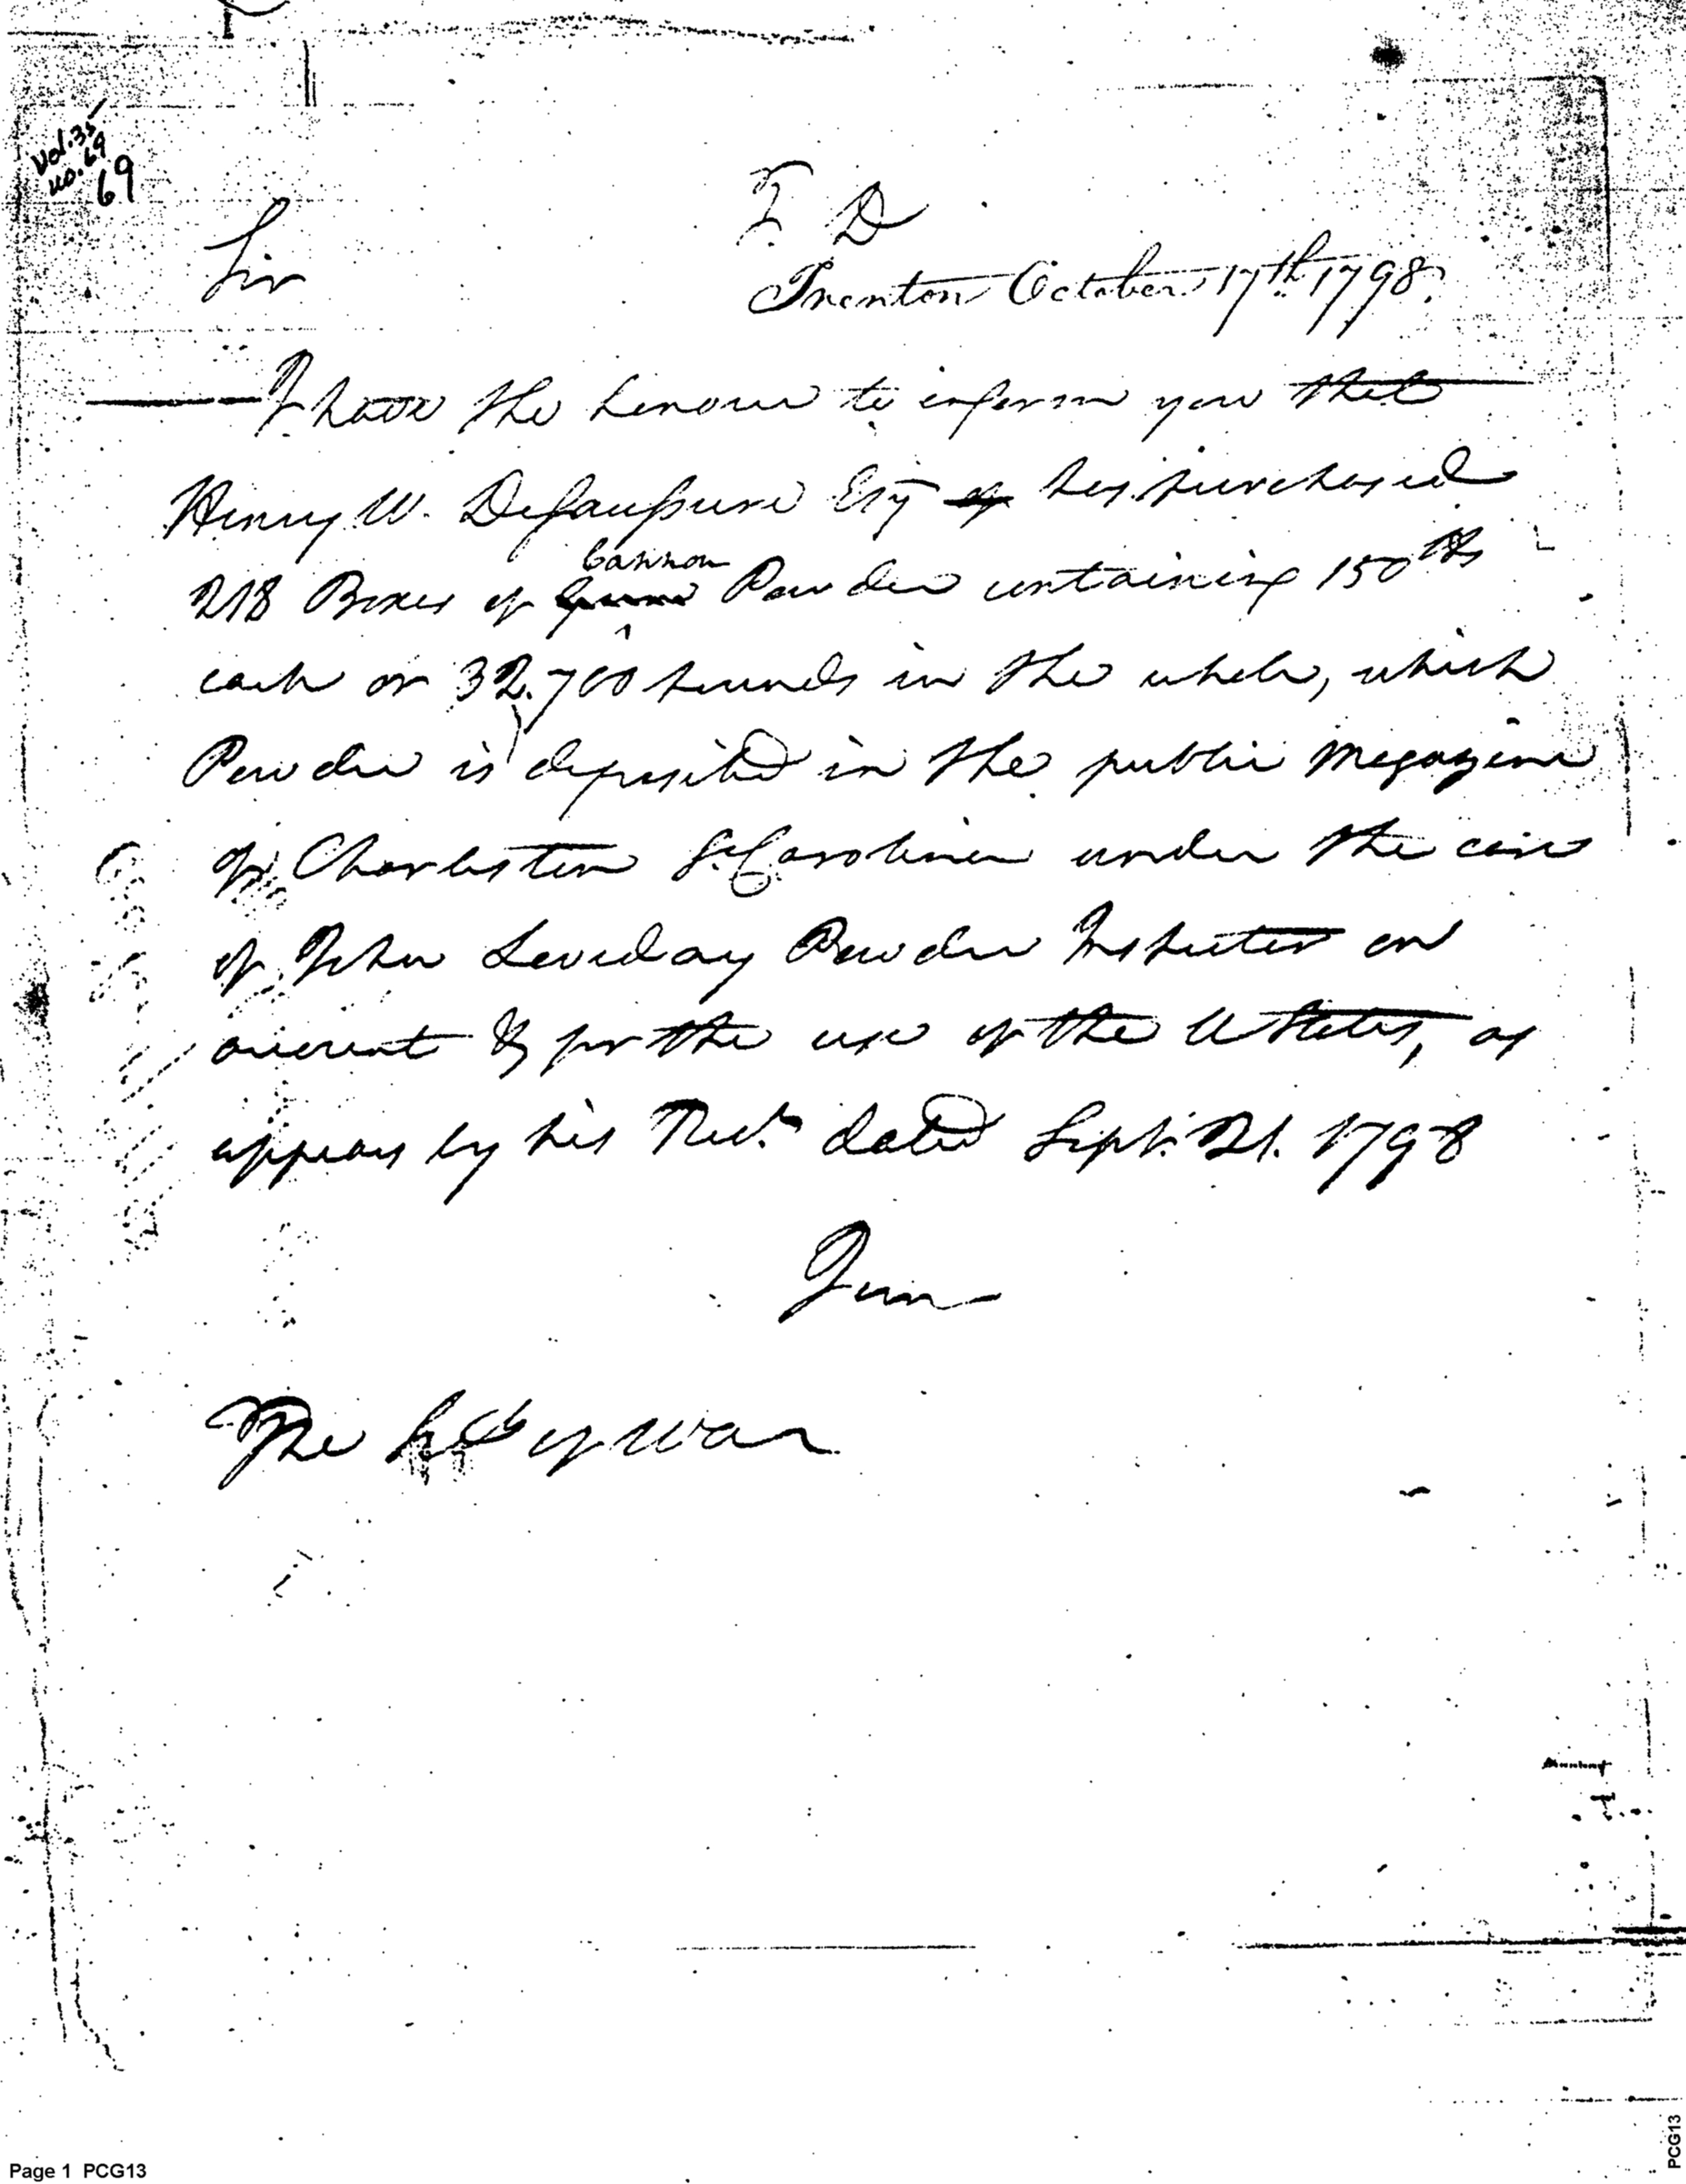 Vol. 35
no. 69
69
T. D
Sir
Trenton October 17th 1798.
I have the honour to inform you that
Henry W. Desaussure Esqr of has purchased
Cannon
218 Boxes of Powder containing 150 lbs
each or 32.700 pounds in the whole, which
Powder is deposited in the public Magazine
of Charleston So. Carolina under the care
of John Loveday Powder Inspector on
account & for the use of the U States, as
appears by his Rect. dated Sept. 21. 1798
I am
The Secy of War
Page 1 PCG13
PCG13